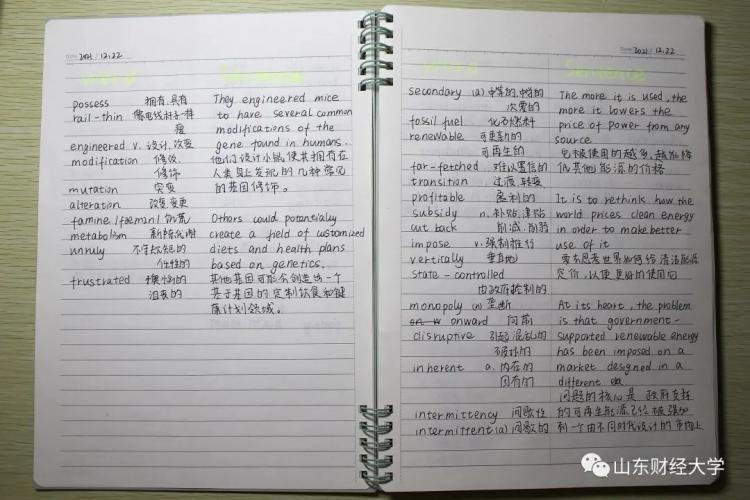 Date 2021 / 12.22
Word Sentence
possess 拥有、具有
rail-thin 像电线杆子一样
瘦
engineered v. 设计、改变
modification 修改、
修饰
mutation 突变
alteration 改变 变更
famine /ˈfæmɪn/ 饥荒
metabolism 新陈代谢
unruly 不守规矩的
任性的
frustrated 懊恼的
沮丧的
They engineered mice
to have several common
modifications of the
gene found in humans.
他们设计小鼠,使其拥有在
人类身上发现的几种常见
的基因修饰。
Others could potentially
create a field of customized
diets and health plans
based on genetics.
其他基因可能会创造出一个
基于基因的定制饮食和健
康计划领域。
Date 2021 / 12.22
Word Sentence
secondary (a) 中等的、中级的
次要的
fossil fuel 化石燃料
renewable 可更新的
可再生的
far-fetched 难以置信的
transition 过渡、转变
profitable 盈利的
subsidy n. 补贴、津贴
cut back 削减、削弱
impose v. 强制推行
vertically 垂直地
state-controlled
由政府控制的
monopoly (n) 垄断
onward 向前
disruptive 引起混乱的
破坏的
inherent a. 内在的
固有的
intermittency 间歇性
intermittent (a) 间歇的
The more it is used, the
more it lowers the
price of power from any
source
它被使用的越多,越能降
低其他能源的价格
It is to rethink how the
world prices clean energy
in order to make better
use of it
要去思考世界如何给清洁能源
定价,以便更好的使用它
At its heart, the problem
is that government-
supported renewable energy
has been imposed on a
market designed in a
different
问题的核心是 政府支持
的可再生能源已经被强加
到一个由不同时代设计的市场上
山东财经大学